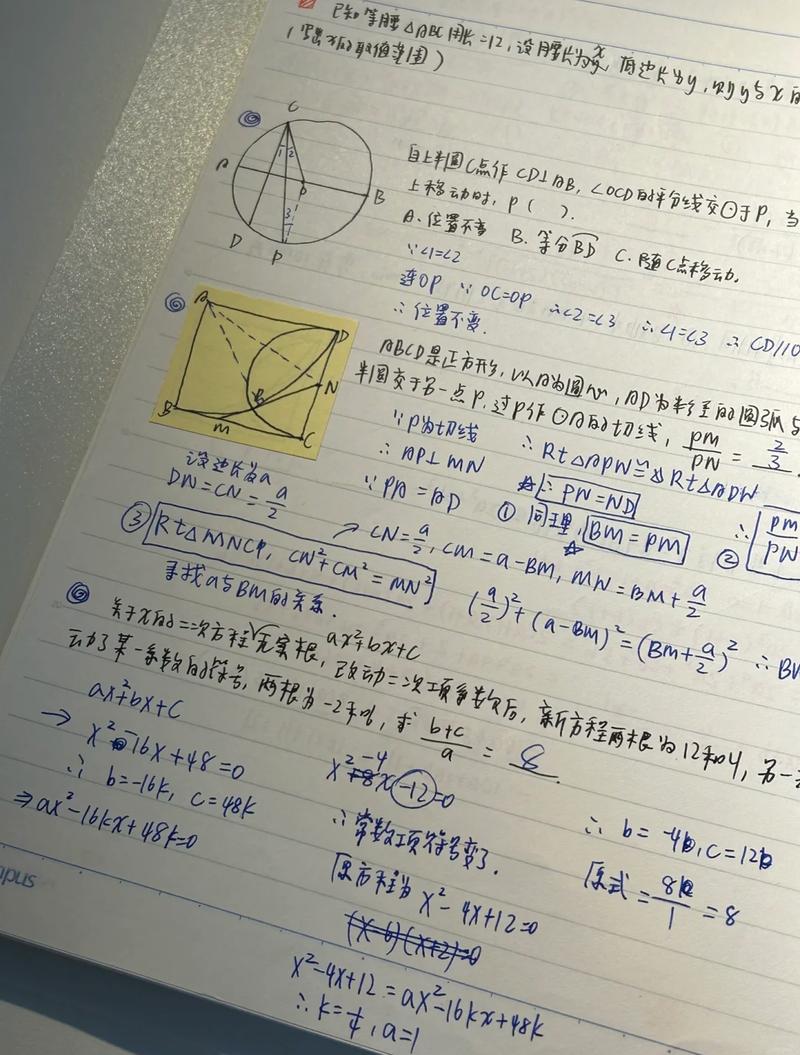 已知等腰△ABC周长=12,设腰长为x,底边长为y,则y与x的
(写出x的取值范围)
C
1 2
A
O
B
3
D
P
自上半圆C点作CD⊥AB,∠OCD的平分线交⊙于P,当
上移动时,P( ).
A.位置不变 B.等分BD C.随C点移动.
∵∠1=∠2
连OP ∵OC=OP ∴∠2=∠3 ∴∠1=∠3 ∴CD//O
∴位置不变.
A
D
N
B
M
C
ABCD是正方形,以A为圆心,AD为半径的圆弧与
半圆交于另一点P.过P作⊙A的切线,PM/PN=2/3.
∵P为切线 ∴Rt△APN≌Rt△ADN
∴AP⊥MN ∴PN=ND
∵PA=AD ①同理,BM=PM ∴PM/PN ②
设边长为a
DN=CN=a/2
③Rt△MNC中,CN²+CM²=MN²
→CN=a/2,CM=a-BM,MN=BM+a/2
寻找a与BM的关系.
(a/2)²+(a-BM)²=(BM+a/2)² ∴BM
关于x的二次方程ax²+bx+c无实根,改动二次项系数后,新方程两根为12和4,另一
动了某一系数的符号,两根为-2和6,求b+c/a=8.
ax²+bx+c
→ x²-16x+48=0
∴b=-16k,c=48k
⇒ax²-16kx+48k=0
x²-4x-12=0
∴常数项符号变了.
原方程为x²-4x+12=0
(x-6)(x+2)=0
x²-4x+12=ax²-16kx+48k
∴k=1/4,a=1
∴b=-4k,c=12k
原式=8k/1=8
pus